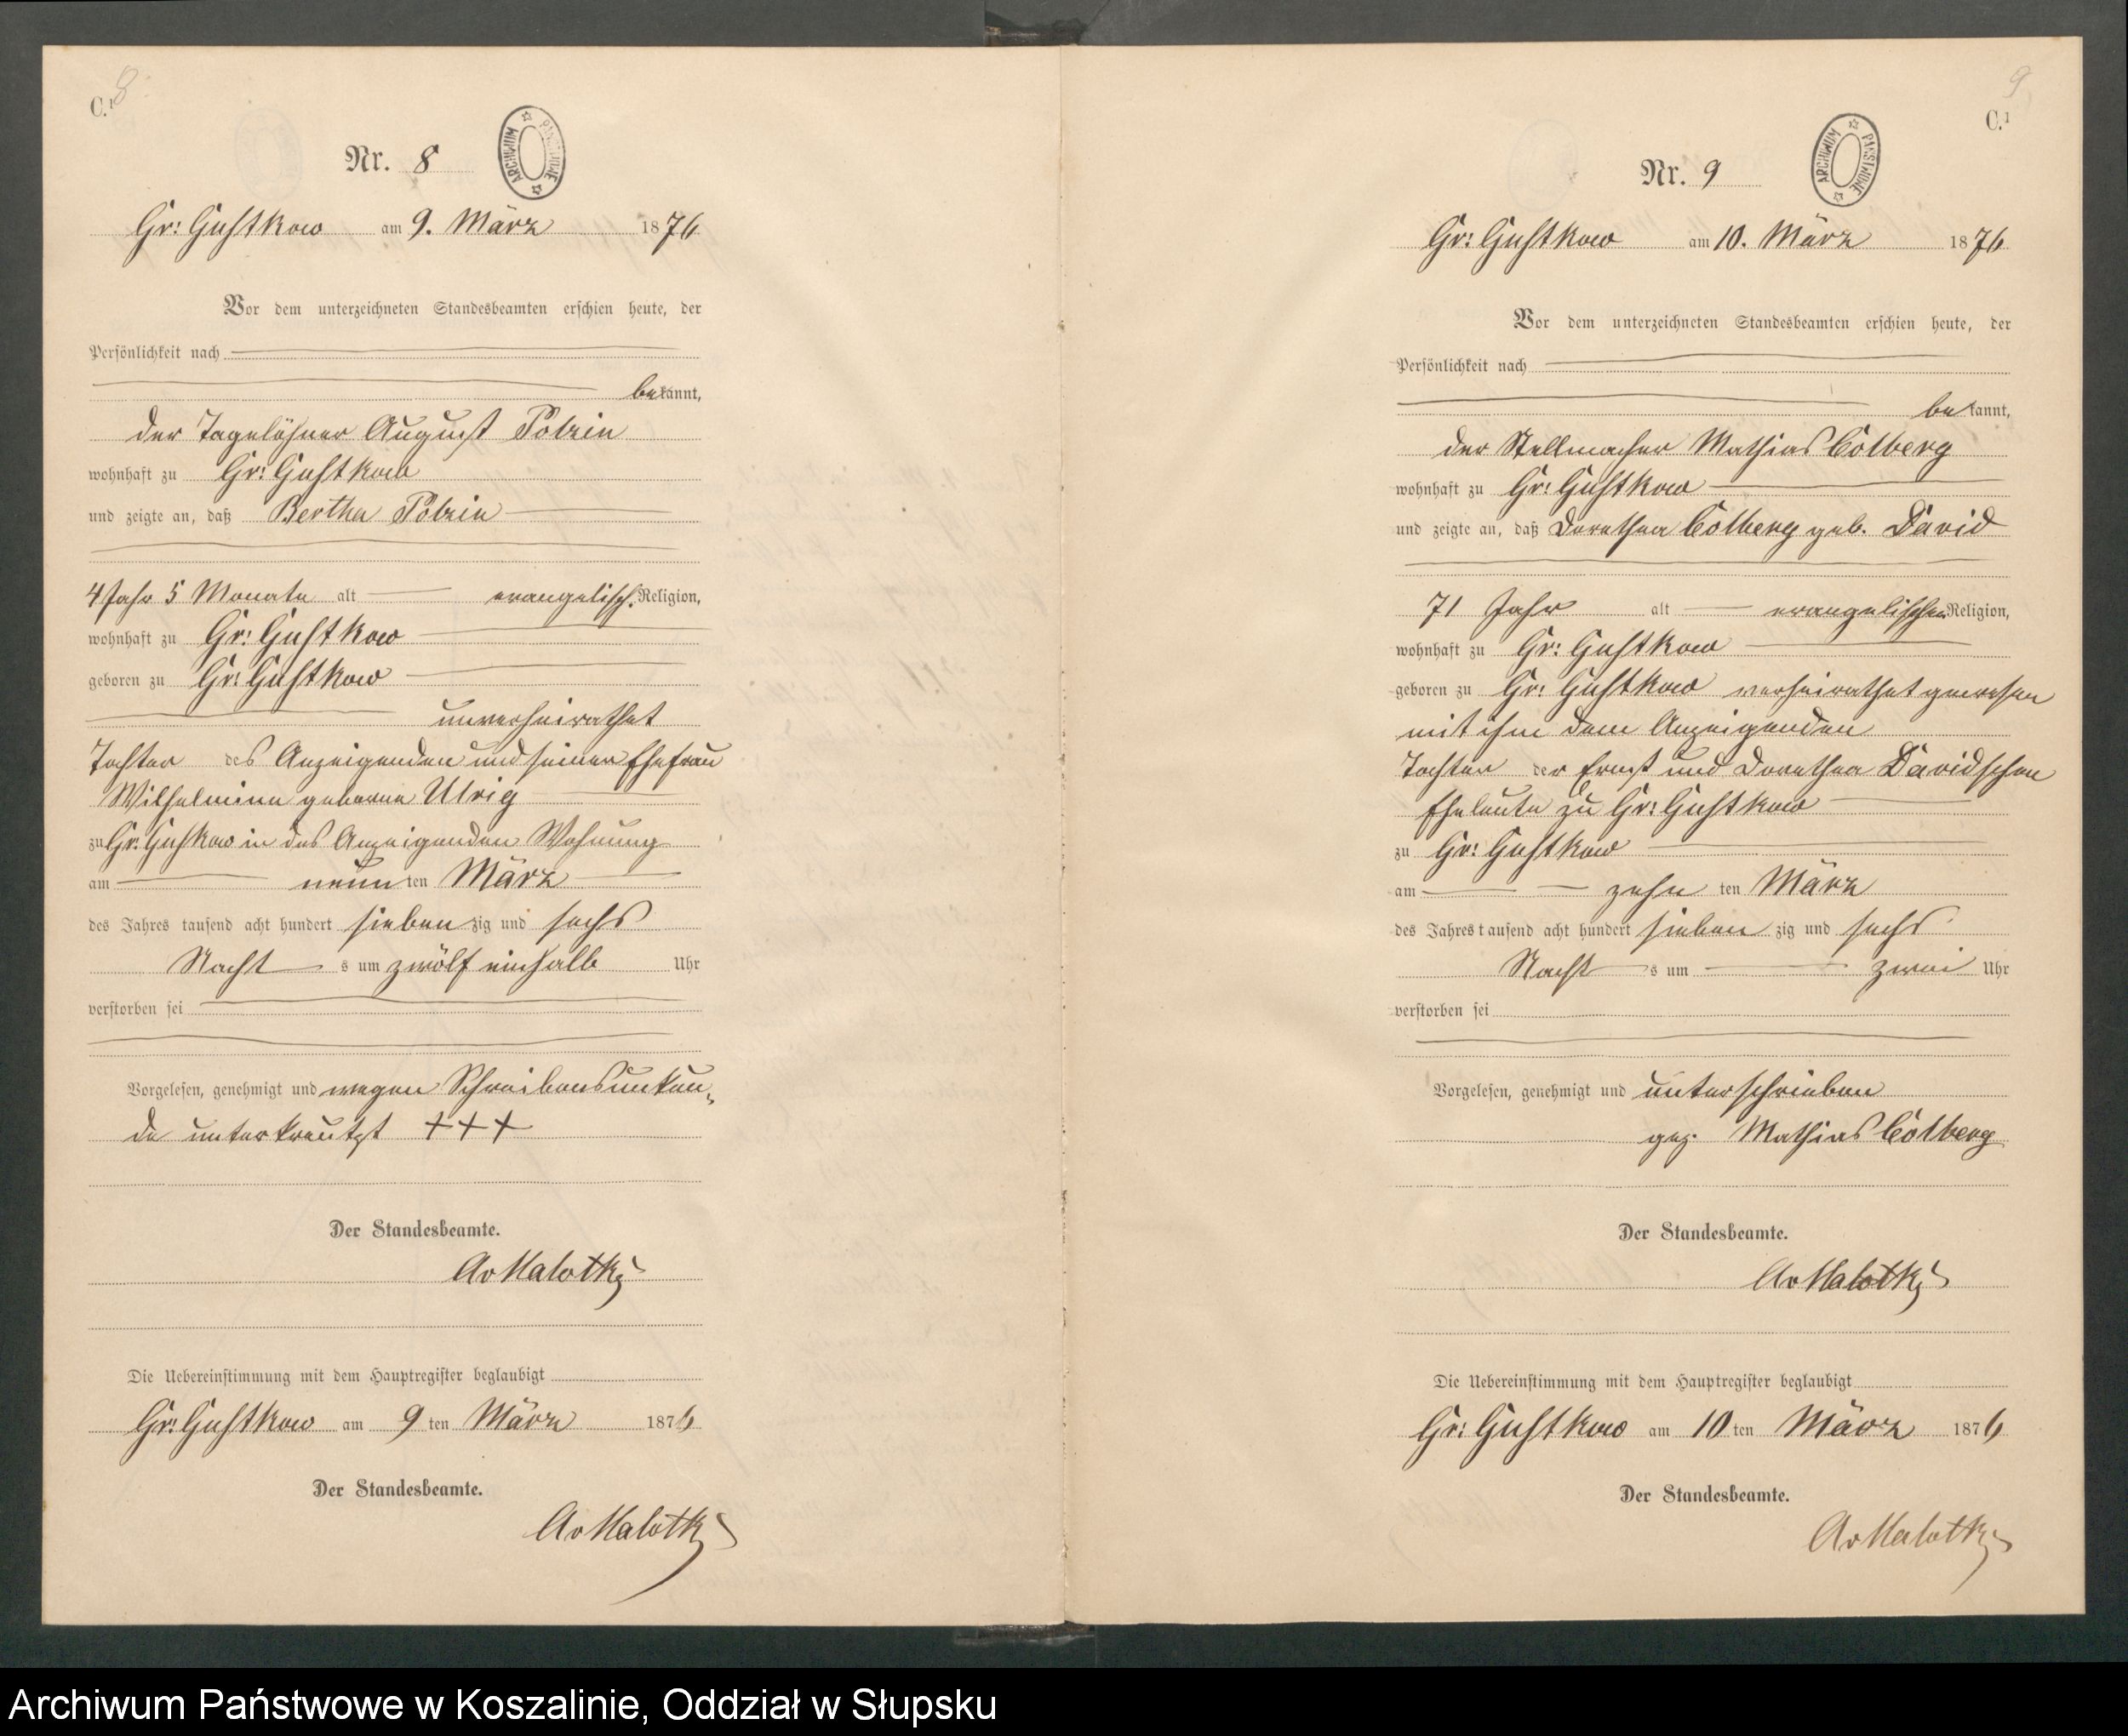 8
C.1
Nr. 8
ARCHIWUM PAŃSTWOWE
Gr: Gustkow am 9. März 1876
Vor dem unterzeichneten Standesbeamten erschien heute, der
Persönlichkeit nach
bekannt,
der Tagelöhner August Polzin
wohnhaft zu Gr: Gustkow
und zeigte an, daß Bertha Polzin
4 Jahr 5 Monate alt evangelisch. Religion,
wohnhaft zu Gr: Gustkow
geboren zu Gr: Gustkow
unverheirathet
Tochter des Anzeigenden und seiner Ehefrau
Wilhelmine geborne Ulrig
zu Gr. Guskow in des Anzeigenden Wohnung
am neunten März
des Jahres tausend acht hundert siebenzig und sechs
Nachts um zwölf einhalb Uhr
verstorben sei
Vorgelesen, genehmigt und wegen Schreibensunkun-
de unterkreutzt +++
Der Standesbeamte.
AvMalotky
Die Uebereinstimmung mit dem Hauptregister beglaubigt
Gr: Gustkow am 9ten März 1876
Der Standesbeamte.
AvMalotky
9
C.1
Nr. 9
ARCHIWUM PAŃSTWOWE
Gr: Gustkow am 10. März 1876
Vor dem unterzeichneten Standesbeamten erschien heute, der
Persönlichkeit nach
bekannt,
der Stellmacher Mathias Colberg
wohnhaft zu Gr: Gustkow
und zeigte an, daß Dorothea Colberg geb. David
71 Jahr alt evangelischer Religion,
wohnhaft zu Gr: Gustkow
geboren zu Gr: Gustkow verheirathet gewesen
mit ihm dem Anzeigenden
Tochter der Ernst und Dorothea Davidschen
Eheleute zu Gr: Gustkow
zu Gr: Gustkow
am zehnten März
des Jahres tausend acht hundert siebenzig und sechs
Nachts um zwei Uhr
verstorben sei
Vorgelesen, genehmigt und unterschrieben
gez. Mathias Colberg
Der Standesbeamte.
AvMalotky
Die Uebereinstimmung mit dem Hauptregister beglaubigt
Gr: Gustkow am 10ten März 1876
Der Standesbeamte.
AvMalotky
Archiwum Państwowe w Koszalinie, Oddział w Słupsku